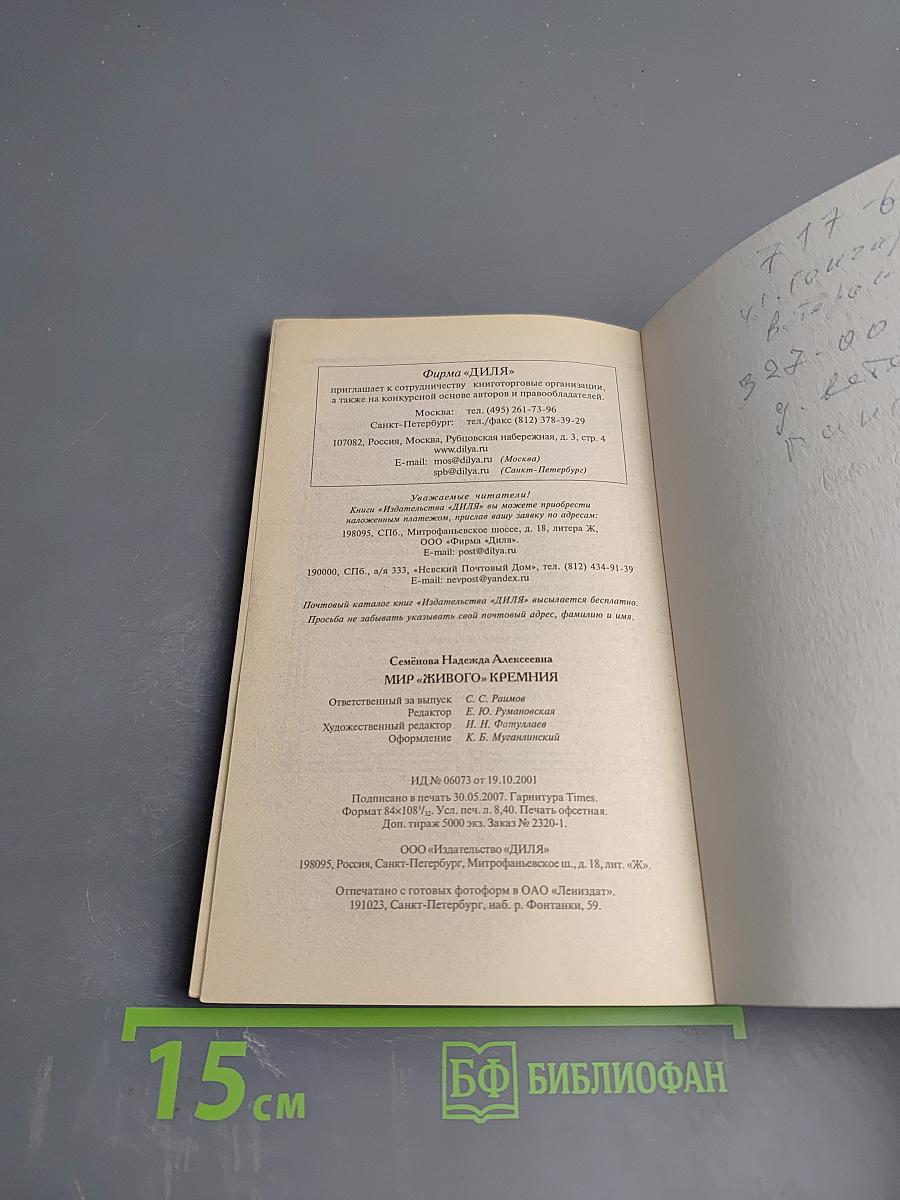 Фирма «ДИЛЯ»
приглашает к сотрудничеству книготорговые организации,
а также на конкурсной основе авторов и правообладателей.
Москва: тел. (495) 261-73-96
Санкт-Петербург: тел./факс (812) 378-39-29
107082, Россия, Москва, Рубцовская набережная, д. 3, стр. 4
www.dilya.ru
E-mail: mos@dilya.ru (Москва)
spb@dilya.ru (Санкт-Петербург)
Уважаемые читатели!
Книги «Издательства «ДИЛЯ» вы можете приобрести
наложенным платежом, прислав вашу заявку по адресам:
198095, СПб., Митрофаньевское шоссе, д. 18, литера Ж,
ООО «Фирма «Диля».
E-mail: post@dilya.ru
190000, СПб., а/я 333, «Невский Почтовый Дом», тел. (812) 434-91-39
E-mail: nevpost@yandex.ru
Почтовый каталог книг «Издательства «ДИЛЯ» высылается бесплатно.
Просьба не забывать указывать свой почтовый адрес, фамилию и имя.
Семёнова Надежда Алексеевна
МИР «ЖИВОГО» КРЕМНИЯ
Ответственный за выпуск С. С. Раимов
Редактор Е. Ю. Румановская
Художественный редактор И. Н. Фатуллаев
Оформление К. Б. Муганлинский
ИД № 06073 от 19.10.2001
Подписано в печать 30.05.2007. Гарнитура Times.
Формат 84×108¹/₃₂. Усл. печ. л. 8,40. Печать офсетная.
Доп. тираж 5000 экз. Заказ № 2320-1.
ООО «Издательство «ДИЛЯ»
198095, Россия, Санкт-Петербург, Митрофаньевское ш., д. 18, лит. «Ж».
Отпечатано с готовых фотоформ в ОАО «Лениздат».
191023, Санкт-Петербург, наб. р. Фонтанки, 59.
717-6
327-00
15 см
БФ БИБЛИОФАН